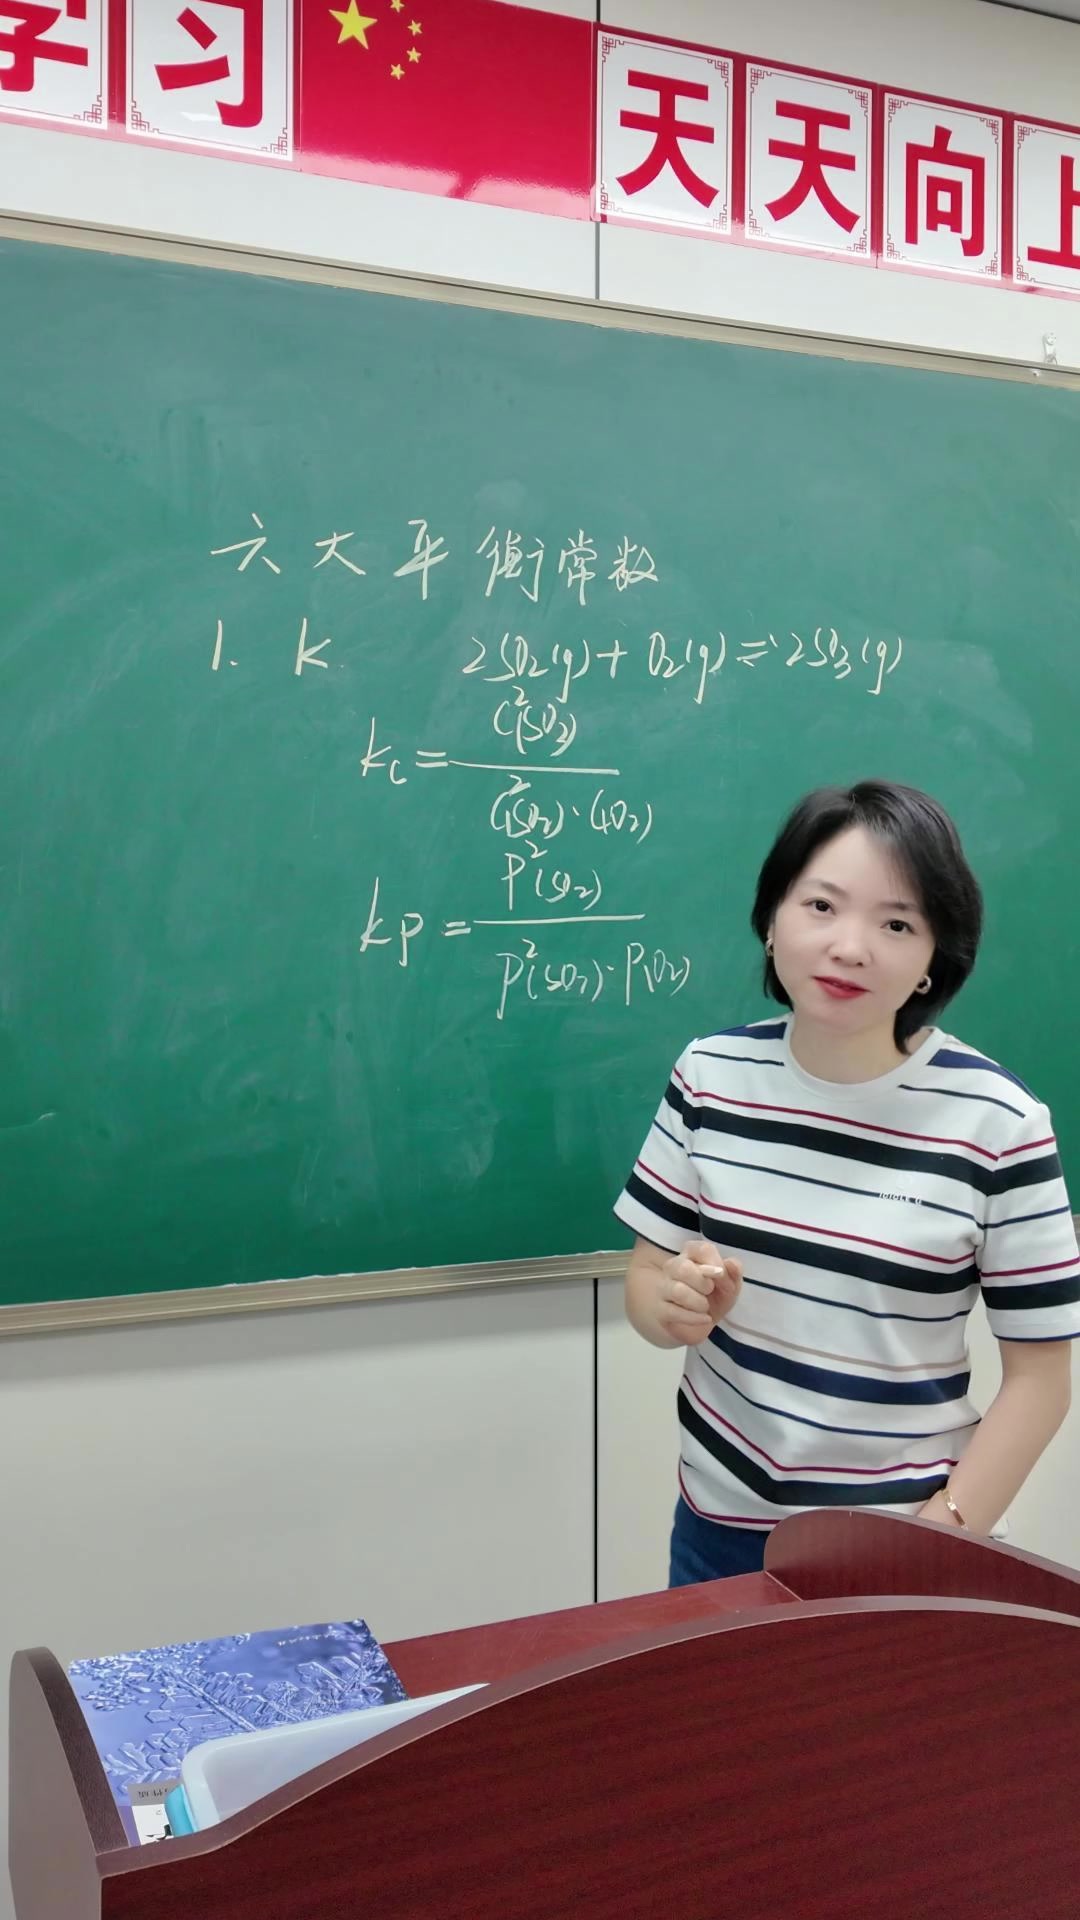 学习 天天向上
六大平衡常数
1. K 2SO₂(g) + O₂(g) ⇌ 2SO₃(g)
Kc = c²(SO₃) / c²(SO₂)·c(O₂)
Kp = P²(SO₂) / P²(SO₂)·P(O₂)